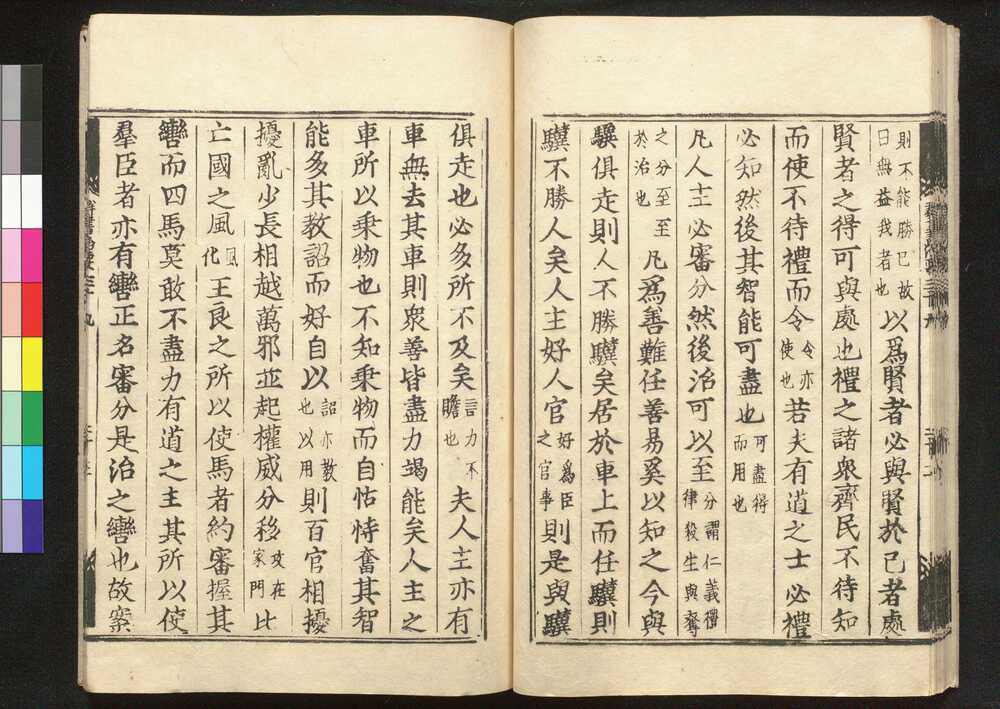 則不能勝己故曰無益我者也以爲賢者必與賢於己者處
賢者之得可與處也禮之諸衆齊民不待知
而使不待禮而令令亦使也若夫有道之士必禮
必知然後其智能可盡也可盡得而用也
凡人主必審分然後治可以至分謂仁義禮律殺生與奪
之分至至於治也凡爲善難任善易奚以知之今與
驥俱走則人不勝驥矣居於車上而任驥則
驥不勝人矣人主好人官好爲臣之官事則是與驥
俱走也必多所不及矣言力不贍也夫人主亦有
車無去其車則衆善皆盡力竭能矣人主之
車所以乗物也不知乗物而自怙恃奮其智
能多其教詔而好自以詔亦教也以用則百官相擾
擾亂少長相越萬邪並起權威分移攻在家門比
亡國之風風化王良之所以使馬者約審握其
轡而四馬莫敢不盡力有道之主其所以使
羣臣者亦有轡正名審分是治之轡也故案